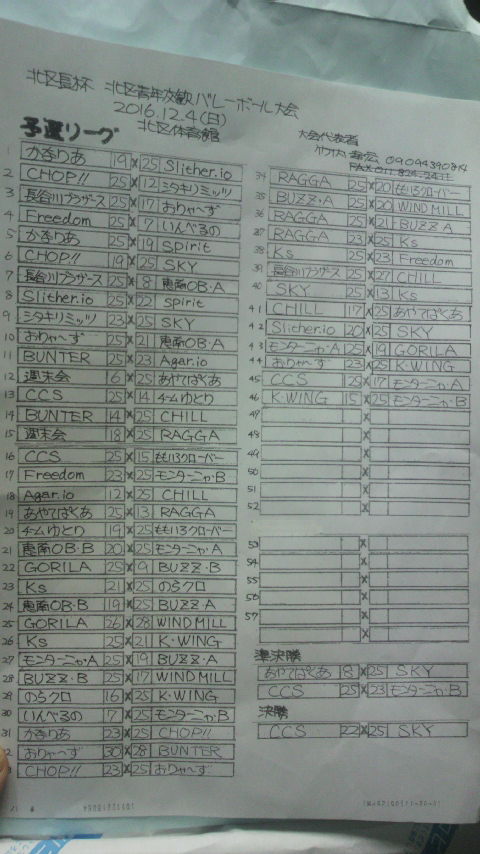 北区長杯 北区青年交歓バレーボール大会
2016.12.4(日)
予選リーグ 北区体育館
大会代表者
1 かなりあ 19×25 Slither.io
2 CHOP!! 25×12 ミタキリミッツ
3 長谷川ブラザース 25×17 おりゃ〜ず
4 Freedom 25×7 いんべるの
5 かなりあ 25×19 Spirit
6 CHOP!! 19×25 SKY
7 長谷川ブラザース 25×18 恵南OB・A
8 Slither.io 25×22 spirit
9 ミタキリミッツ 23×25 SKY
10 おりゃ〜ず 25×21 恵南OB・A
11 BUNTER 25×23 Agar.io
12 週末会 6×25 あやてばくあ
13 CCS 25×14 チームゆとり
14 BUNTER 14×25 CHILL
15 週末会 18×25 RAGGA
16 CCS 25×15 ももいろクローバー
17 Freedom 23×25 モンターニャ・B
18 Agar.io 12×25 CHILL
19 あやてばくあ 25×13 RAGGA
20 チームゆとり 19×25 ももいろクローバー
21 恵南OB・B 20×25 モンターニャ・A
22 GORILA 25×9 BUZZ・B
23 Ks 21×25 のらクロ
24 恵南OB・B 19×25 BUZZ・A
25 GORILA 26×28 WINDMILL
26 Ks 25×21 K・WING
27 モンターニャ・A 25×19 BUZZ・A
28 BUZZ・B 25×17 WINDMILL
29 のらクロ 16×25 K・WING
30 いんべるの 17×25 モンターニャ・B
31 かなりあ 23×25 CHOP!!
32 おりゃ〜ず 30×28 BUNTER
CHOP!! 23×25 おりゃ〜ず
34 RAGGA 25×20 ももいろクローバー
35 BUZZ・A 25×20 WINDMILL
36 RAGGA 25×21 BUZZ・A
37 RAGGA 23×25 Ks
38 Ks 25×23 Freedom
39 長谷川ブラザース 25×27 CHILL
40 SKY 25×13 Ks
41 CHILL 17×25 あやてばくあ
42 Slither.io 20×25 SKY
43 モンターニャ・A 25×19 GORILA
44 おりゃ〜ず 23×25 K・WING
45 CCS 25×17 モンターニャ・A
46 K・WING 15×25 モンターニャ・B
47 ×
48 ×
49 ×
50 ×
51 ×
52 ×
53 ×
54 ×
55 ×
56 ×
57 ×
準決勝
あやてばくあ 8×25 SKY
CCS 25×23 モンターニャ・B
決勝
CCS 22×25 SKY